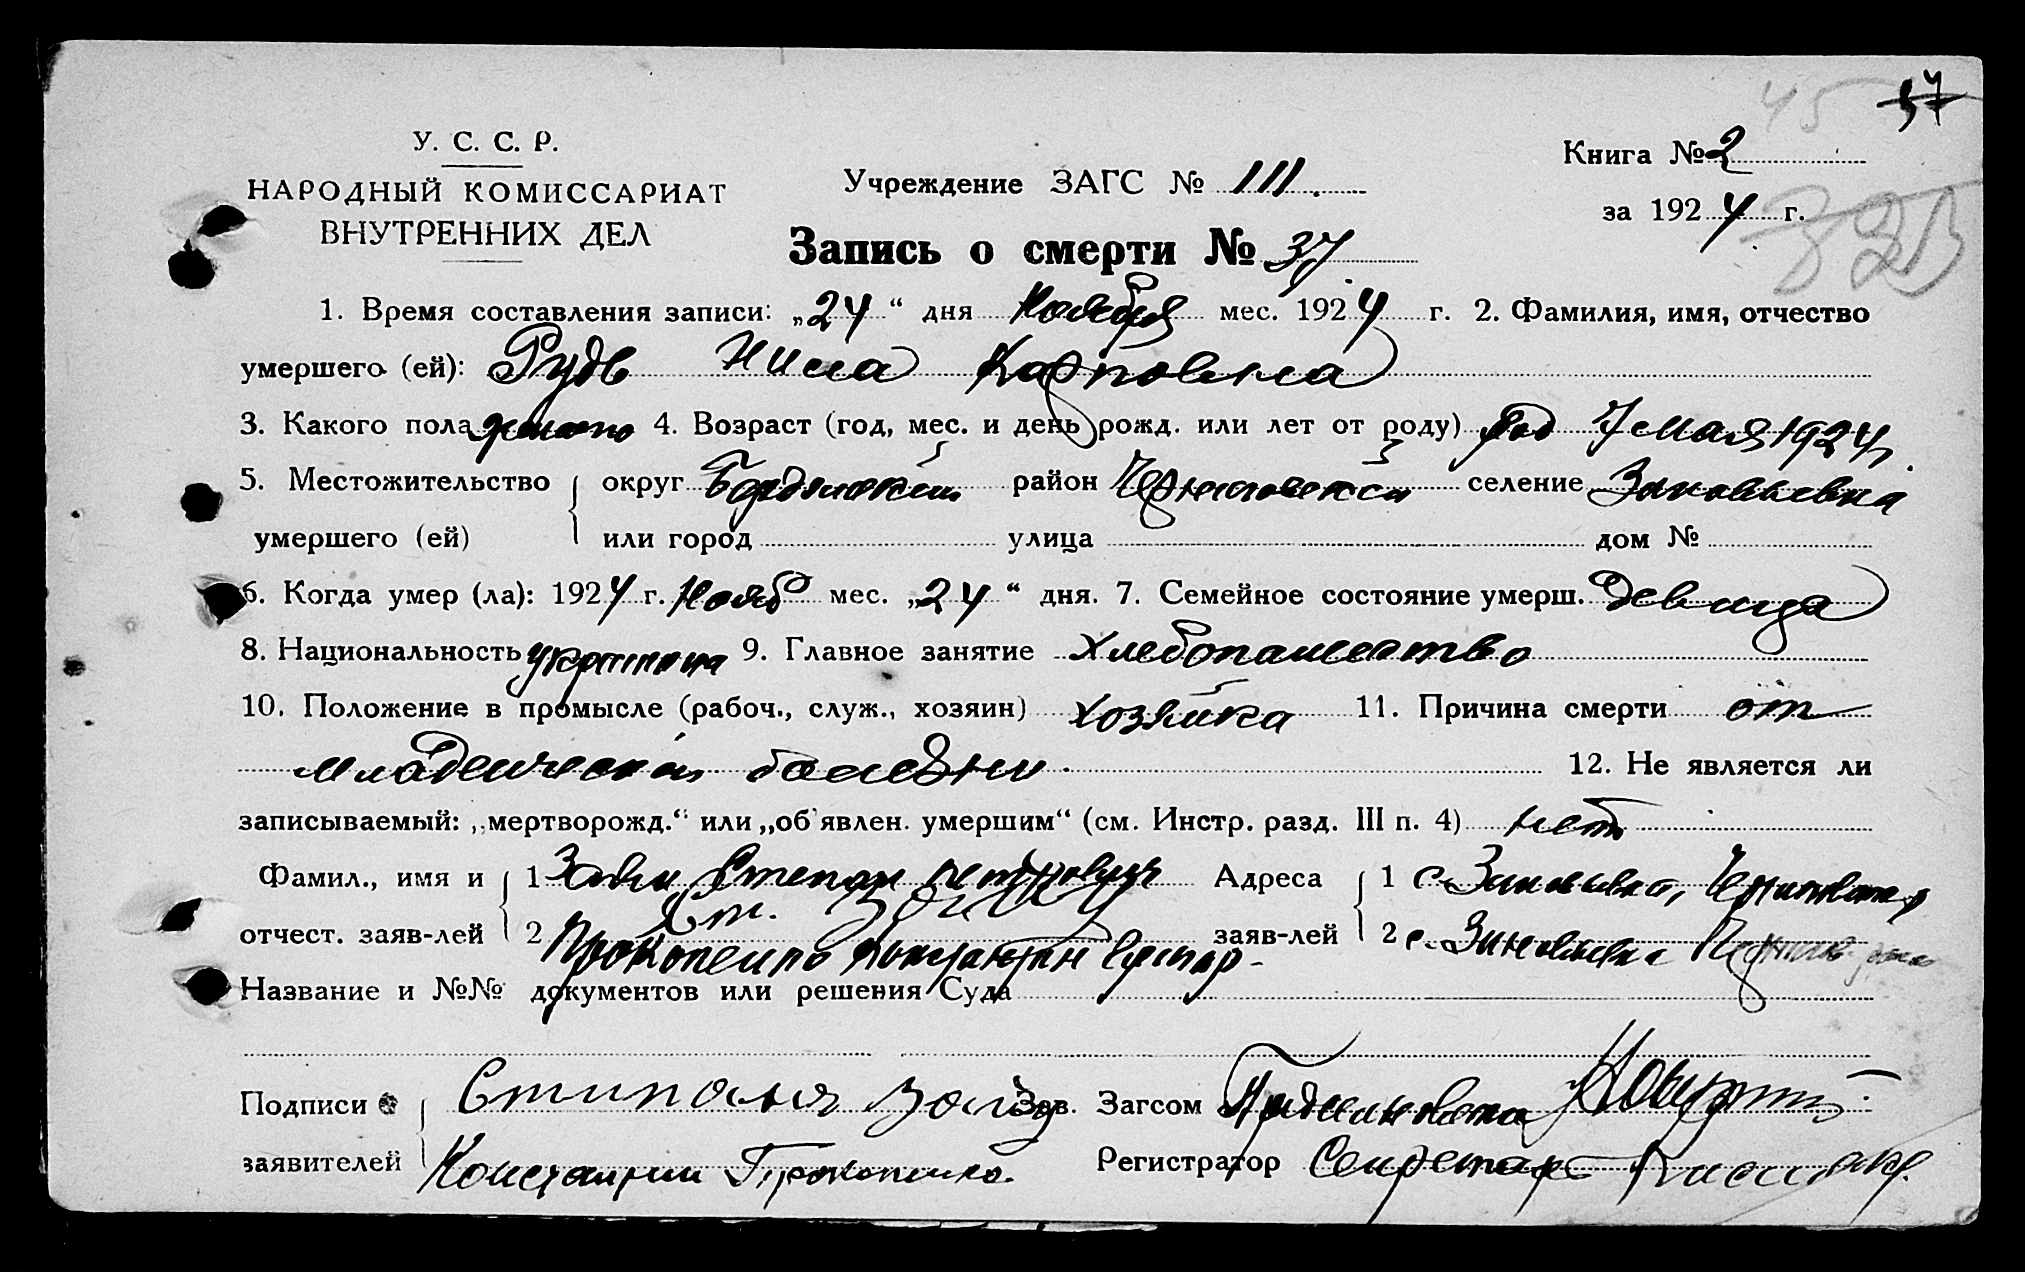 45 37
У. С. С. Р.
НАРОДНЫЙ КОМИССАРИАТ
ВНУТРЕННИХ ДЕЛ
Учреждение ЗАГС № 111.
Книга № 2
за 1924 г.
Запись о смерти № 37.
1. Время составления записи: „24“ дня Ноября мес. 1924 г. 2. Фамилия, имя, отчество
умершего (ей): Рудь Нина Карповна
3. Какого пола женского 4. Возраст (год, мес. и день рожд. или лет от роду) род 7 мая 1924 г.
5. Местожительство округ Бердянский район Черниговский селение Зиновьевка
умершего (ей) или город улица дом №
6. Когда умер (ла): 1924 г. Нояб мес. „24“ дня. 7. Семейное состояние умерш. девица
8. Национальность украинка 9. Главное занятие хлебопашество
10. Положение в промысле (рабоч., служ., хозяин) хозяйка 11. Причина смерти от
младенческой болезни. 12. Не является ли
записываемый: „мертворожд.“ или „об'явлен. умершим“ (см. Инстр. разд. III п. 4) нет
Фамил., имя и 1 Степан Петрович Адреса 1 с. Зиновьевка,
отчест. заяв-лей 2 Прокопенко Константин заяв-лей 2 с. Зиновьевка
Название и №№ документов или решения Суда
Подписи Зав. Загсом
заявителей Константин Прокопенко Регистратор Секретарь